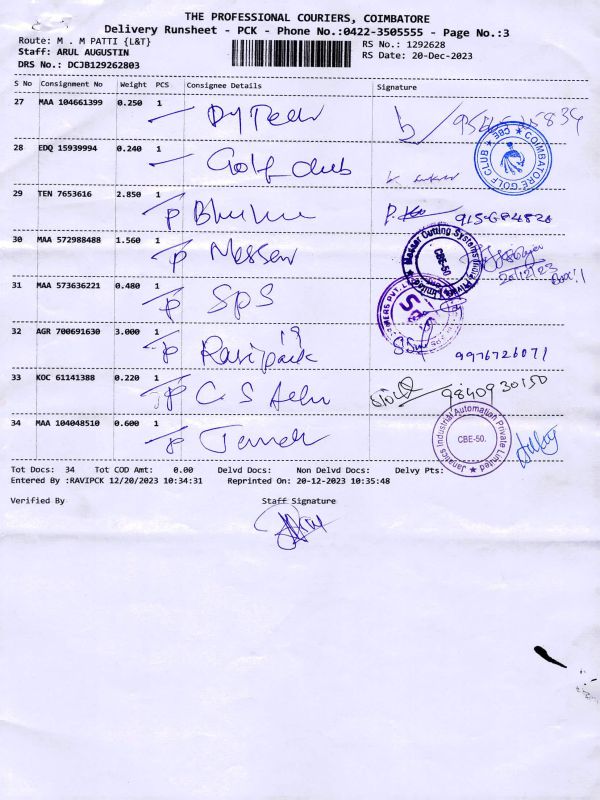 THE PROFESSIONAL COURIERS, COIMBATORE
Delivery Runsheet - PCK - Phone No.:0422-3505555 - Page No.:3
Route: M . M PATTI {L&T}
RS No.: 1292628
Staff: ARUL AUGUSTIN
RS Date: 20-Dec-2023
DRS No.: DCJB129262803
S No Consignment No Weight PCS Consignee Details Signature
27 MAA 104661399 0.250 1
28 EDQ 15939994 0.240 1 Golf club
COIMBATORE GOLF CLUB ★ CBE ★
29 TEN 7653616 2.850 1
30 MAA 572988488 1.560 1 Messer
Messer Cutting Systems India Private Limited
CBE-50
20/12/23
31 MAA 573636221 0.480 1 SPS
32 AGR 700691630 3.000 1 Ravipack 19
9976726071
33 KOC 61141388 0.220 1 C S
9840930150
34 MAA 104048510 0.600 1
Janatics Industrial Automation Private Limited ★
CBE-50.
Tot Docs: 34 Tot COD Amt: 0.00 Delvd Docs: Non Delvd Docs: Delvy Pts:
Entered By :RAVIPCK 12/20/2023 10:34:31 Reprinted On: 20-12-2023 10:35:48
Verified By Staff Signature